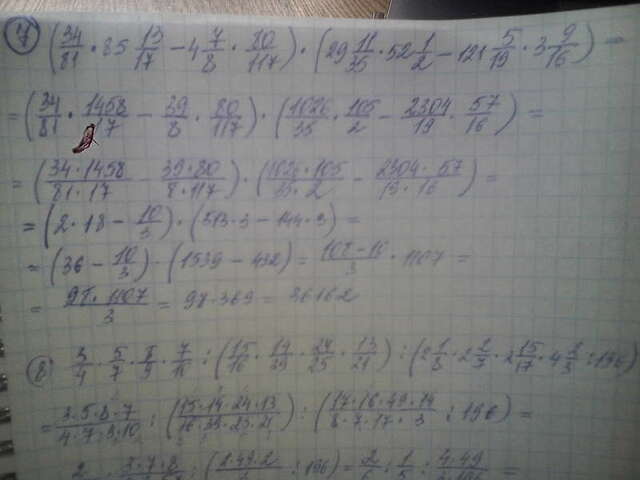 7 (34/81 · 85 13/17 − 4 7/8 · 80/117) · (29 11/35 · 52 1/2 − 121 5/19 · 3 9/16) =
= (34/81 · 1458/17 − 39/8 · 80/117) · (1026/35 · 105/2 − 2304/19 · 57/16) =
= (34·1458/81·17 − 39·80/8·117) · (1026·105/35·2 − 2304·57/19·16) =
= (2·18 − 10/3) · (513·3 − 144·3) =
= (36 − 10/3) · (1539 − 432) = 108−10/3 · 1107 =
= 98·1107/3 = 98·369 = 36162
8) 3/4 · 5/7 · 8/9 · 7/10 : (15/16 · 14/39 · 24/25 · 13/21) : (2 1/8 · 2 2/7 · 2 15/17 · 4 2/3 : 196) =
= 3·5·8·7/4·7·9·10 : (15·14·24·13/16·39·25·21) : (17·16·49·14/8·7·17·3 : 196) =
: 196) = 2/6 : 1/5 :